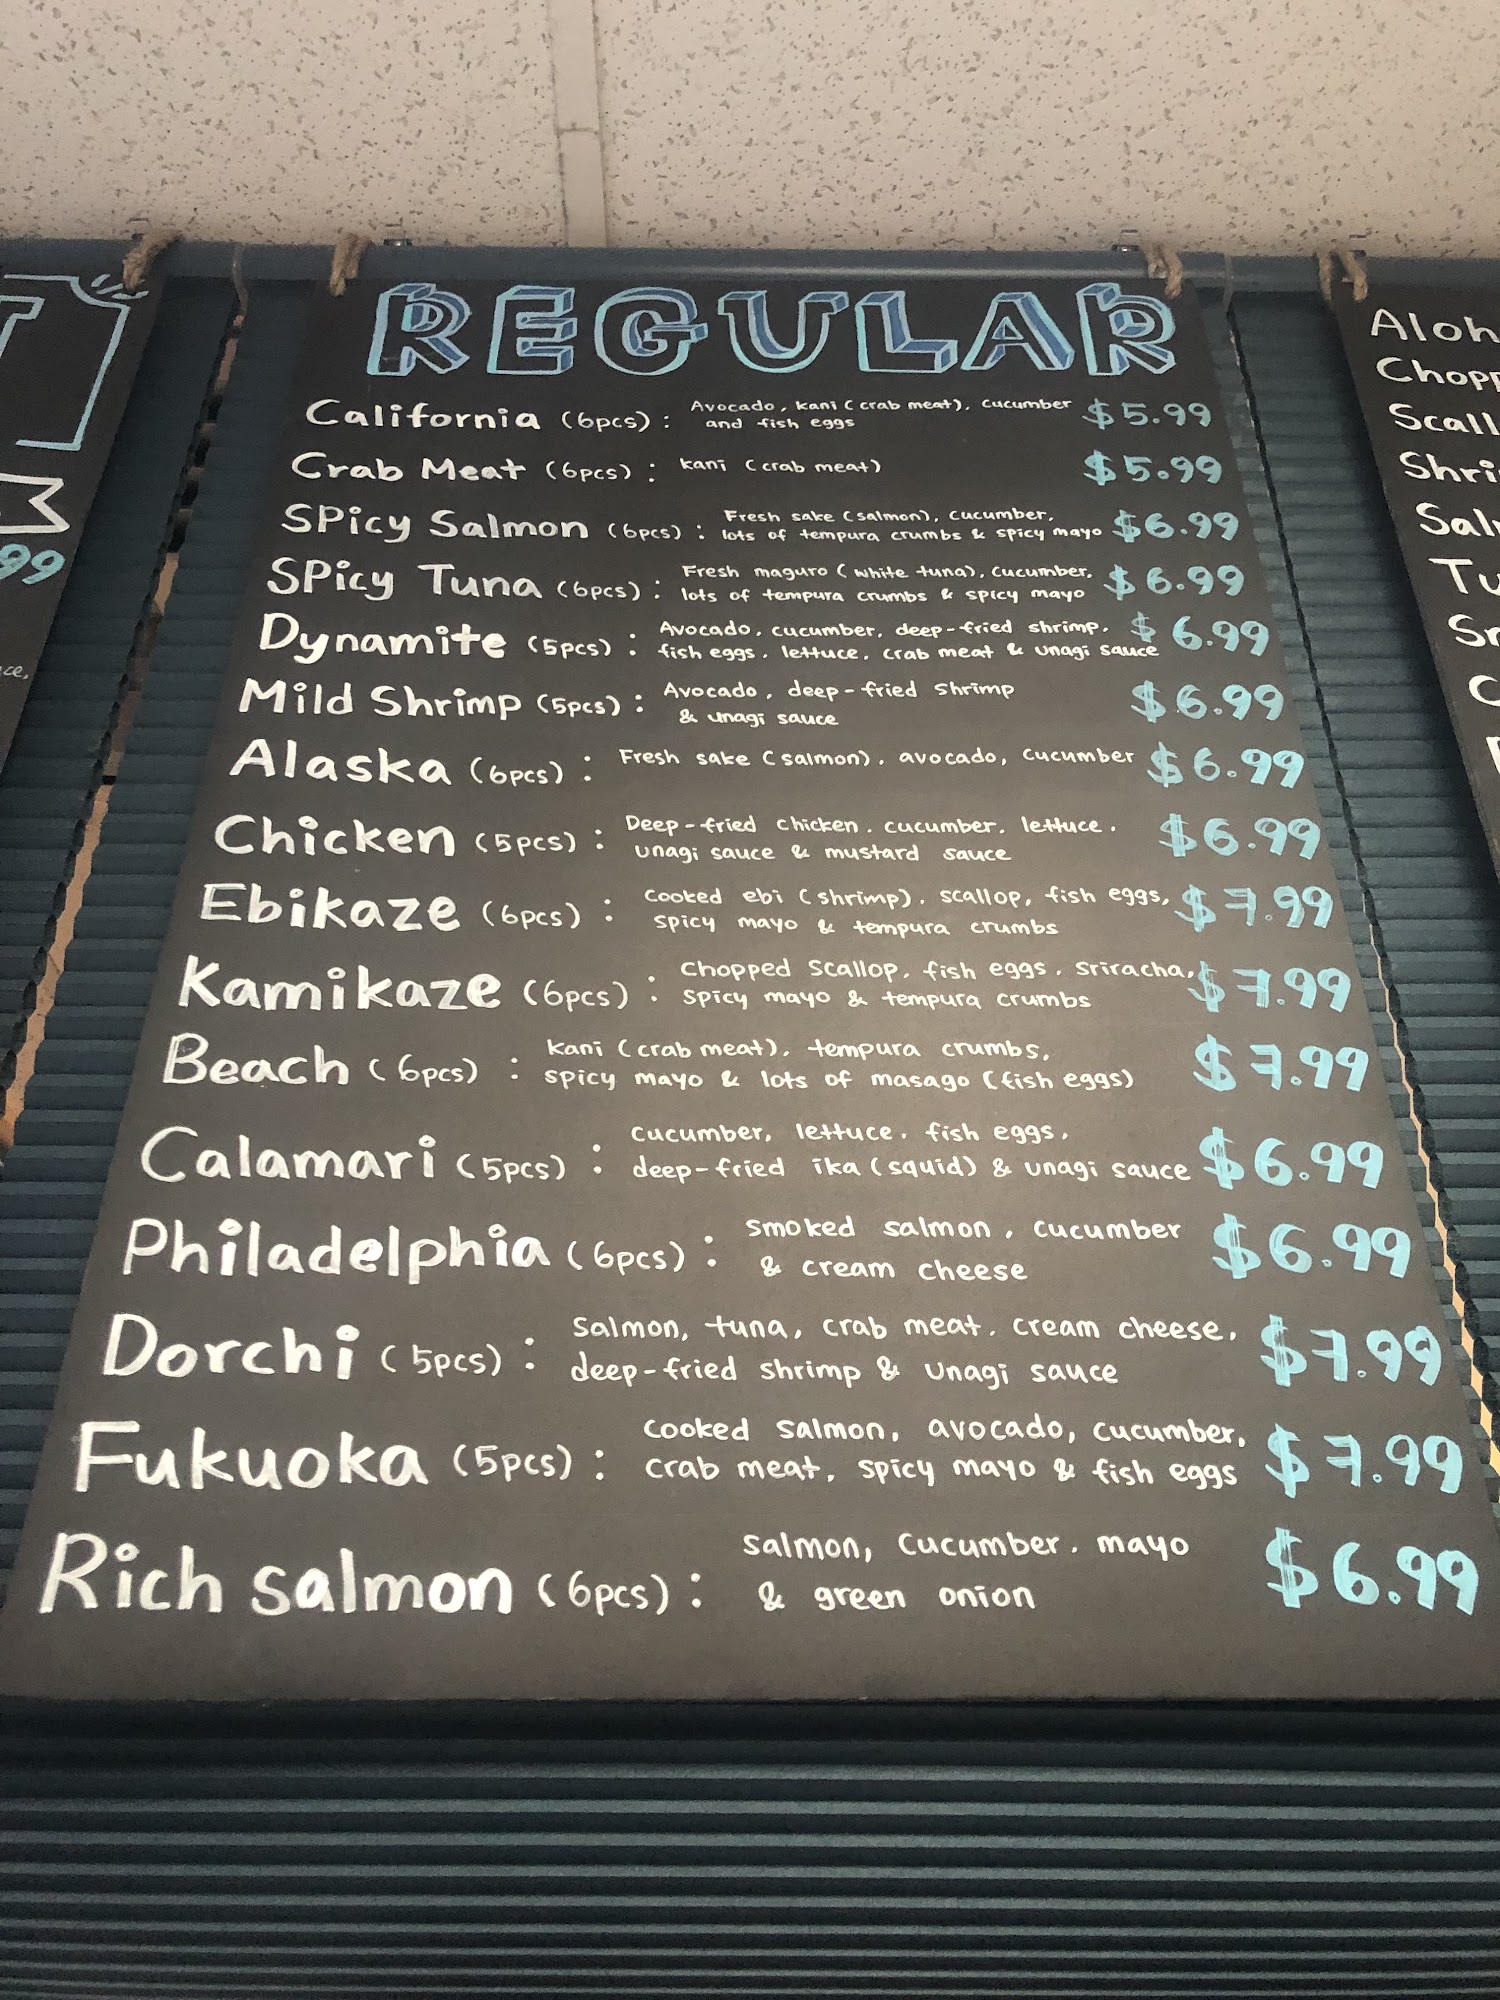 REGULAR
California (6pcs) : Avocado, kani (crab meat), cucumber $5.99
and fish eggs
Crab Meat (6pcs) : kani (crab meat) $5.99
SPicy Salmon (6pcs) : Fresh sake (salmon), cucumber, $6.99
lots of tempura crumbs & spicy mayo
SPicy Tuna (6pcs) : Fresh maguro (white tuna), cucumber, $6.99
lots of tempura crumbs & spicy mayo
Dynamite (5pcs) : Avocado, cucumber, deep-fried shrimp, $6.99
fish eggs, lettuce, crab meat & unagi sauce
Mild Shrimp (5pcs) : Avocado, deep-fried shrimp $6.99
& unagi sauce
Alaska (6pcs) : Fresh sake (salmon), avocado, cucumber $6.99
Chicken (5pcs) : Deep-fried chicken, cucumber, lettuce, $6.99
unagi sauce & mustard sauce
Ebikaze (6pcs) : cooked ebi (shrimp), scallop, fish eggs, $7.99
spicy mayo & tempura crumbs
Kamikaze (6pcs) : Chopped scallop, fish eggs, sriracha, $7.99
spicy mayo & tempura crumbs
Beach (6pcs) : kani (crab meat), tempura crumbs, $7.99
spicy mayo & lots of masago (fish eggs)
Calamari (5pcs) : cucumber, lettuce, fish eggs, $6.99
deep-fried ika (squid) & unagi sauce
Philadelphia (6pcs) : smoked salmon, cucumber $6.99
& cream cheese
Dorchi (5pcs) : Salmon, tuna, crab meat, cream cheese, $7.99
deep-fried shrimp & unagi sauce
Fukuoka (5pcs) : cooked salmon, avocado, cucumber, $7.99
crab meat, spicy mayo & fish eggs
Rich salmon (6pcs) : salmon, cucumber, mayo $6.99
& green onion
99
Aloh
Chopp
Scall
Shri
Sal
Tu